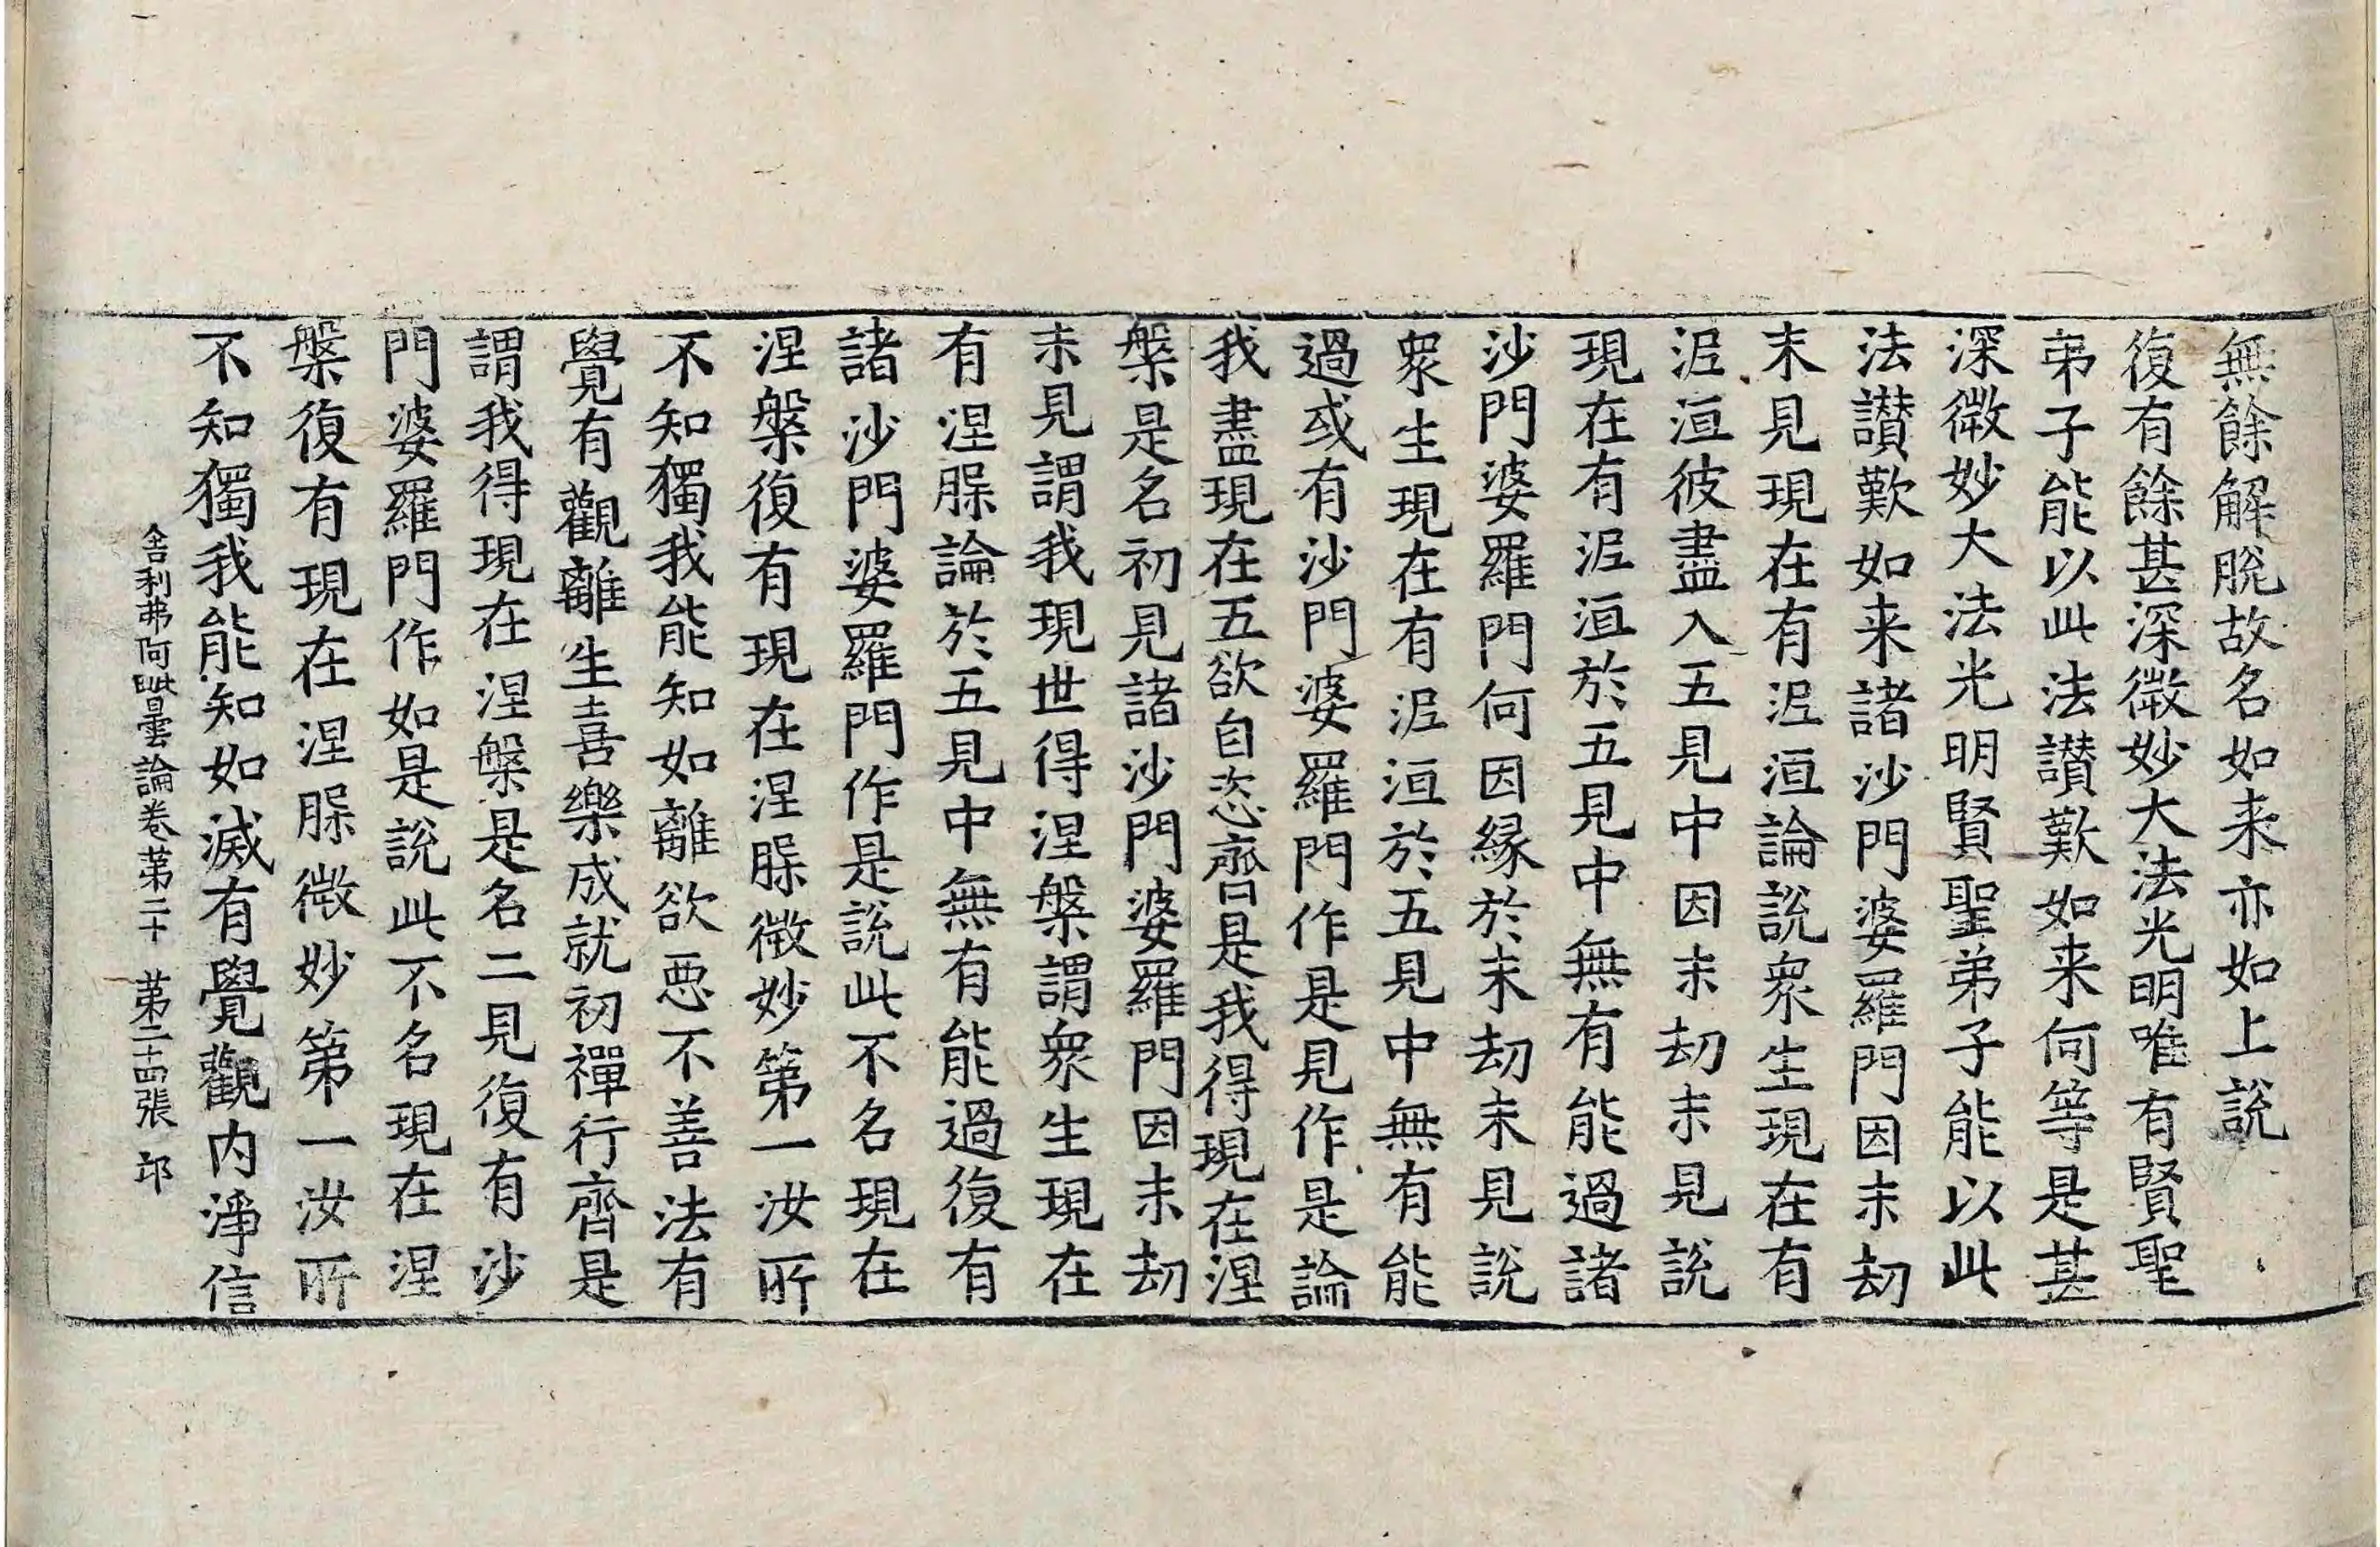 無餘解脫故名如来亦如上說
復有餘甚深微妙大法光明唯有賢聖
弟子能以此法讃歎如来何等是甚
深微妙大法光明賢聖弟子能以此
法讃歎如来諸沙門婆羅門因末劫
末見現在有泥洹論說衆生現在有
泥洹彼盡入五見中因末劫末見說
現在有泥洹於五見中無有能過諸
沙門婆羅門何因緣於末劫末見說
衆生現在有泥洹於五見中無有能
過或有沙門婆羅門作是見作是論
我盡現在五欲自恣齊是我得現在涅
槃是名初見諸沙門婆羅門因末劫
末見謂我現世得涅槃謂衆生現在
有涅槃論於五見中無有能過復有
諸沙門婆羅門作是說此不名現在
涅槃復有現在涅槃微妙第一汝所
不知獨我能知如離欲惡不善法有
覺有觀離生喜樂成就初禪行齊是
謂我得現在涅槃是名二見復有沙
門婆羅門作如是說此不名現在涅
槃復有現在涅槃微妙第一汝所
不知獨我能知如滅有覺觀内淨信
舍利弗阿毗曇論卷苐二十 苐二十四張 邙